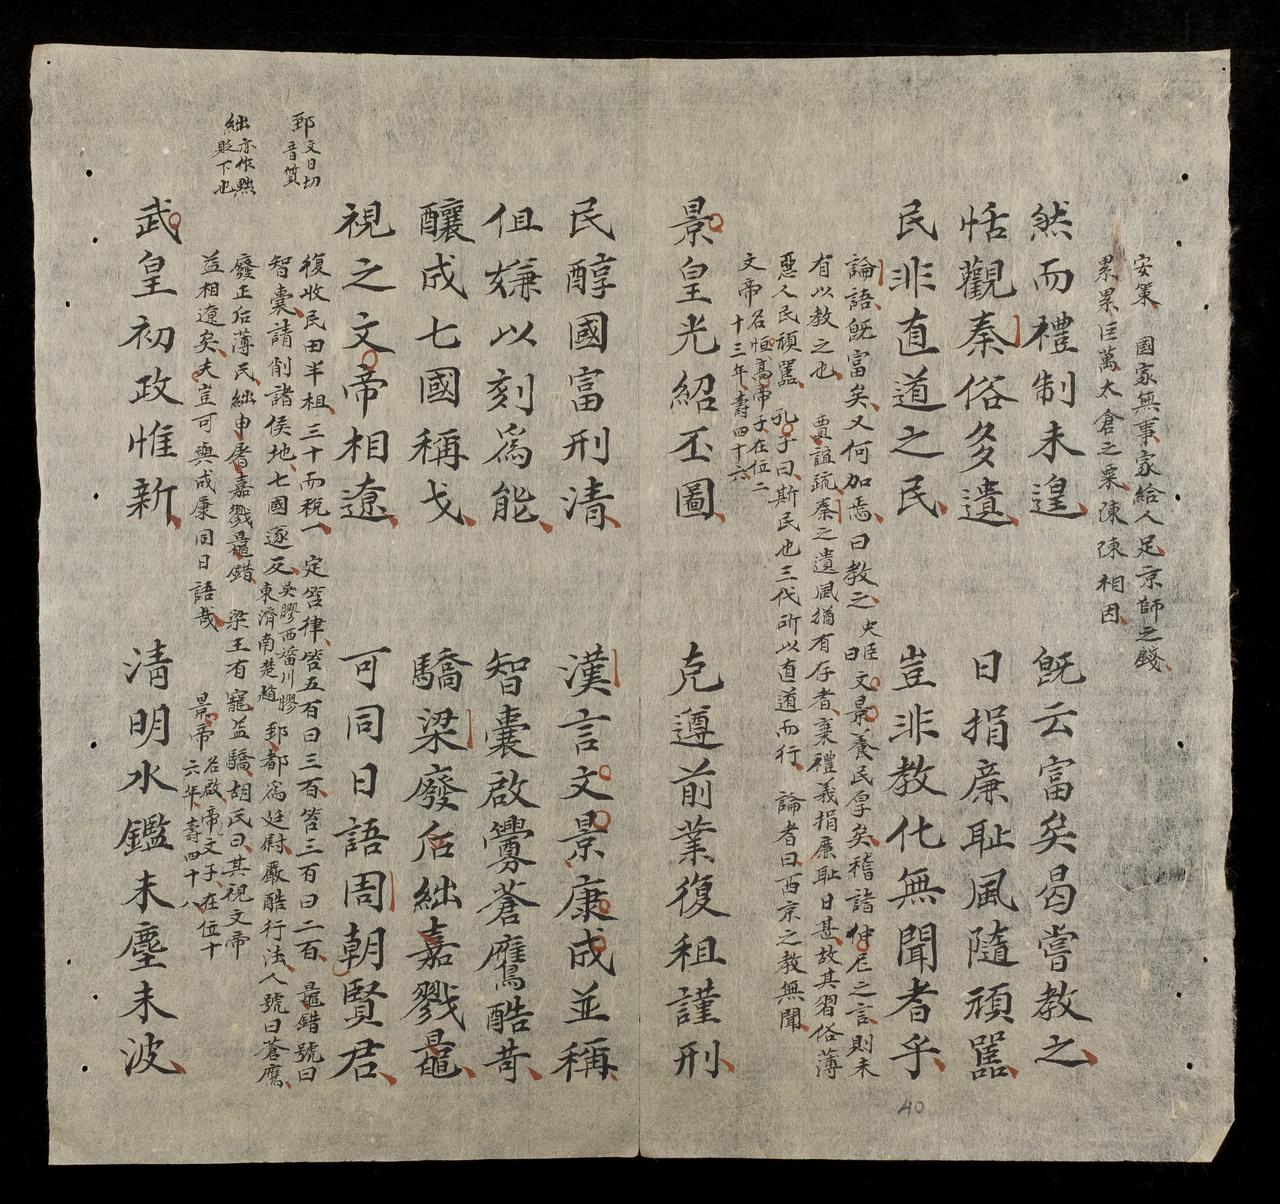 安策 國家無事家給人足京師之錢
累累巨萬太倉之粟陳陳相因
然而禮制未遑 旣云富矣曷嘗教之
恬觀秦俗多遺 日捐廉耻風隨頑嚚
民非直道之民 豈非教化無聞者乎
論語旣富矣又何加焉曰教之 史臣曰 文景養民厚矣稽諸仲尼之言則未
有以教之也 賈誼疏秦之遺風猶有存者棄禮義捐廉耻日甚故其習俗薄
惡人民頑嚚 孔子曰斯民也三代所以直道而行 論者曰西京之教無聞
文帝名恒高帝子在位二
十三年壽四十六
景皇光紹丕圖 克遵前業復租謹刑
民醇國富刑清 漢言文景康成並稱
伹嫌以刻爲能 智囊啟釁蒼鷹酷苛
釀成七國稱戈 驕梁廢后絀嘉戮鼂
視之文帝相遼 可同日語周朝賢君
郅文日切
音質
絀亦作黜
貶下也
復收民田半租三十而稅一 定笞律笞五百曰三百笞三百曰二百 鼂錯號曰
智囊請削諸侯地七國逐反吳膠西菑川膠
東濟南楚趙 郅都爲廷尉嚴酷行法人號曰蒼鷹
廢正后薄氏絀申屠嘉戮鼂錯 梁王有寵益驕胡氏曰其視文帝
益相遼矣夫豈可與成康同日語哉 景帝名啟帝文子在位十
六年壽四十八
武皇初政惟新 清明水鑑未塵未波
40